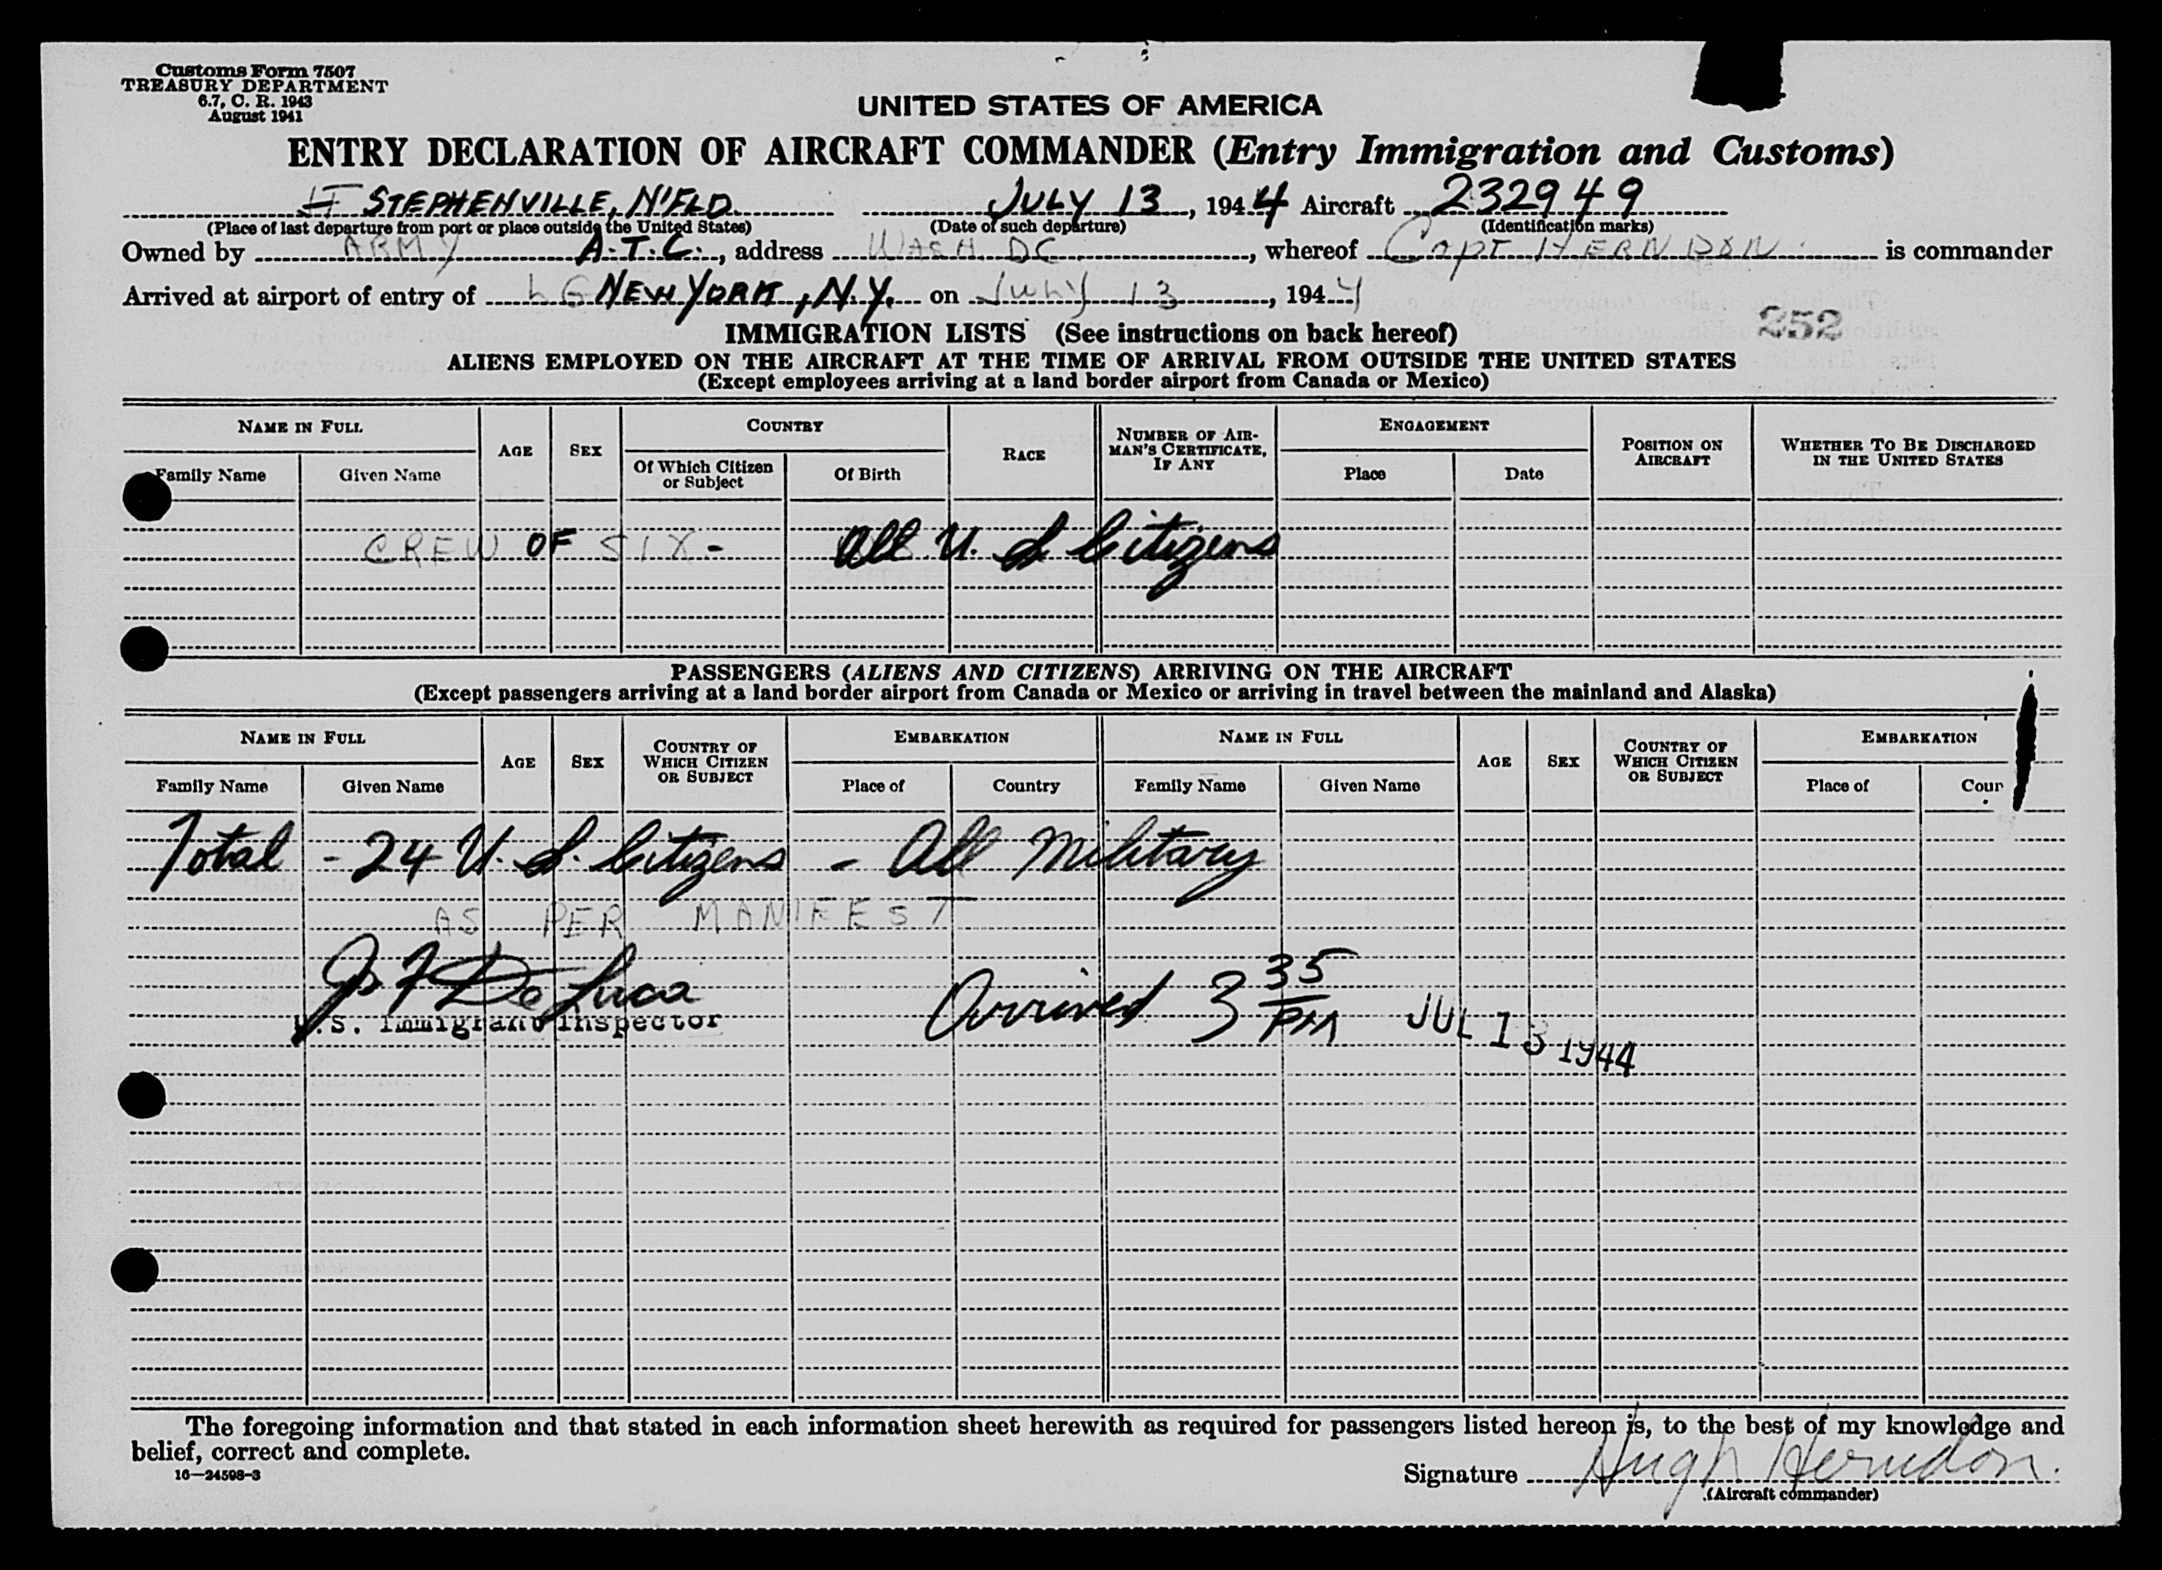 Customs Form 7507
TREASURY DEPARTMENT
6.7, C. R. 1943
August 1941
UNITED STATES OF AMERICA
ENTRY DECLARATION OF AIRCRAFT COMMANDER (Entry Immigration and Customs)
STEPHENVILLE, N'FLD JULY 13, 1944 Aircraft 232949
(Place of last departure from port or place outside the United States) (Date of such departure) (Identification marks)
Owned by ARMY A.T.C., address WASH DC, whereof CAPT HERNDON is commander
Arrived at airport of entry of LG NEW YORK, N.Y. on JULY 13, 1944
IMMIGRATION LISTS (See instructions on back hereof)
252
ALIENS EMPLOYED ON THE AIRCRAFT AT THE TIME OF ARRIVAL FROM OUTSIDE THE UNITED STATES
(Except employees arriving at a land border airport from Canada or Mexico)
NAME IN FULL AGE SEX COUNTRY RACE NUMBER OF AIRMAN'S CERTIFICATE, IF ANY ENGAGEMENT POSITION ON AIRCRAFT WHETHER TO BE DISCHARGED IN THE UNITED STATES
Family Name Given Name Of Which Citizen or Subject Of Birth Place Date
CREW OF SIX - All U. S Citizens
PASSENGERS (ALIENS AND CITIZENS) ARRIVING ON THE AIRCRAFT
(Except passengers arriving at a land border airport from Canada or Mexico or arriving in travel between the mainland and Alaska)
NAME IN FULL AGE SEX COUNTRY OF WHICH CITIZEN OR SUBJECT EMBARKATION NAME IN FULL AGE SEX COUNTRY OF WHICH CITIZEN OR SUBJECT EMBARKATION
Family Name Given Name Place of Country Family Name Given Name Place of Coun
Total - 24 U. S. Citizens - All Military
AS PER MANIFEST
Jos F De Luca
U.S. Immigrant Inspector
Arrived 3 35 PM JUL 13 1944
The foregoing information and that stated in each information sheet herewith as required for passengers listed hereon is, to the best of my knowledge and
belief, correct and complete.
16—24598-3
Signature Hugh Herndon.
(Aircraft commander)